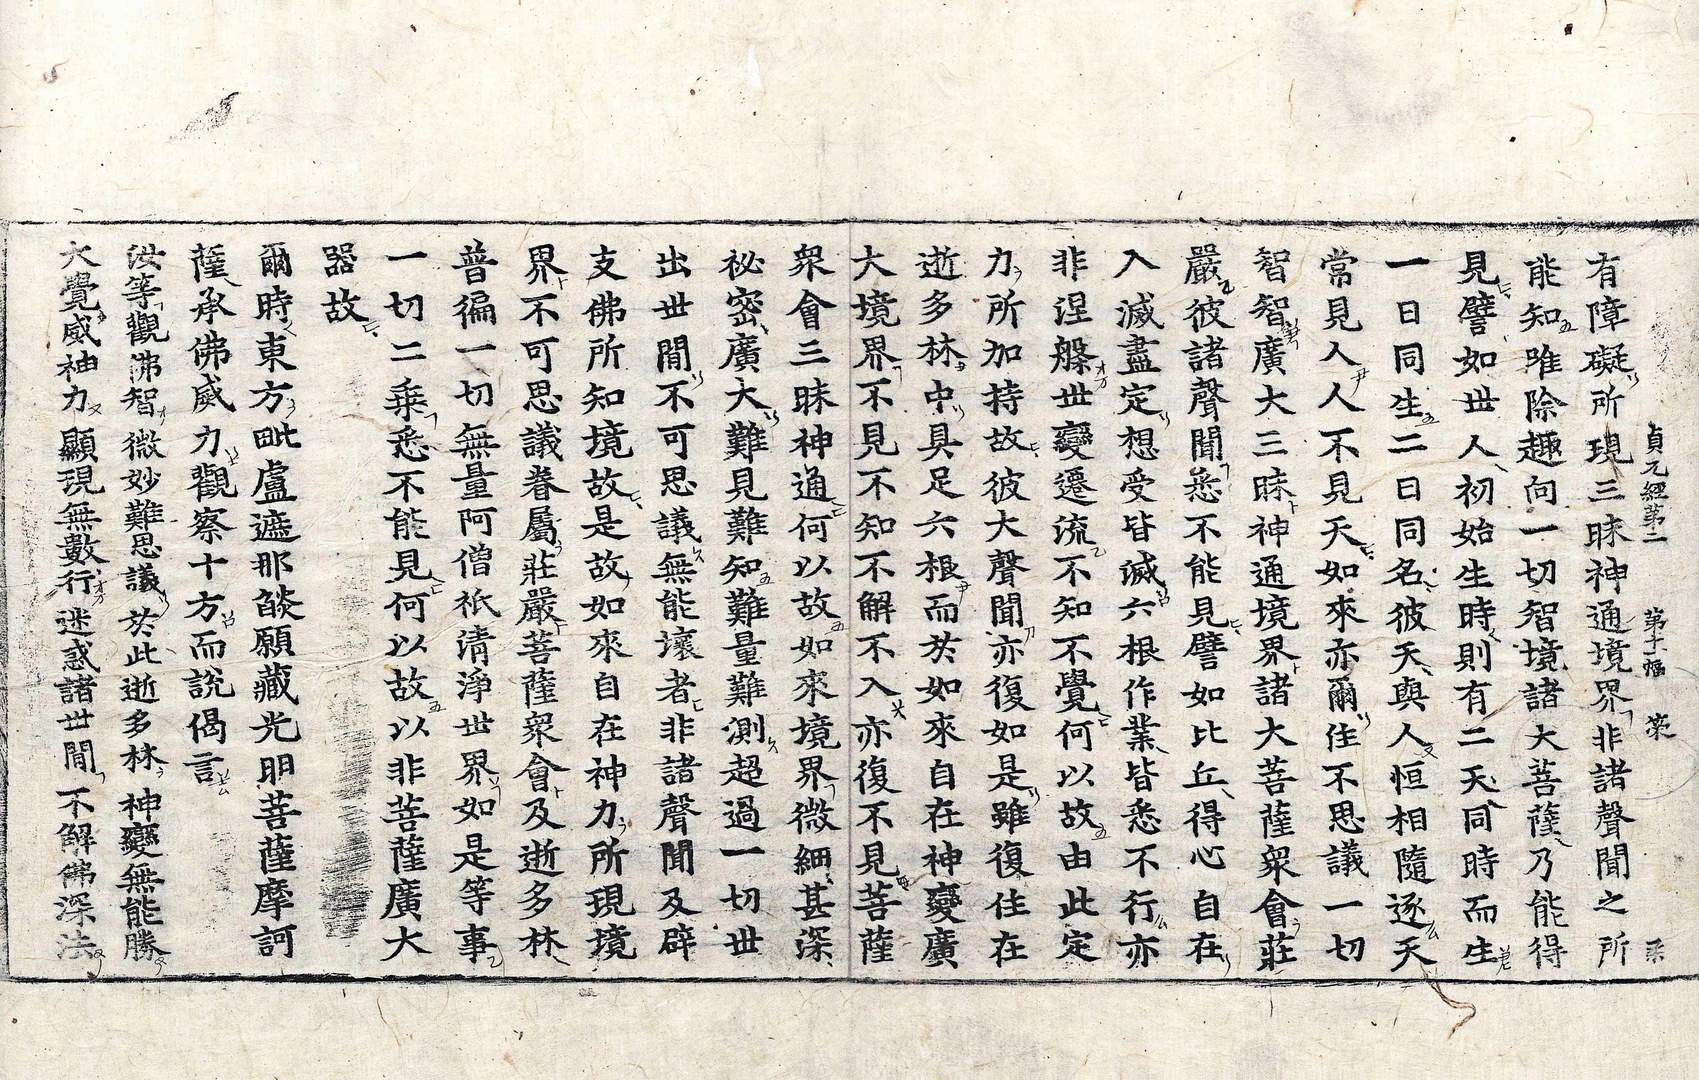 貞元經第二 第十六幅
有障礙所現三昧神通境界非諸聲聞之所
能知唯除趣向一切智境諸大菩薩乃能得
見譬如世人初始生時則有二天同時而生
一曰同生二曰同名彼天與人恒相隨逐天
常見人人不見天如來亦爾住不思議一切
智智廣大三昧神通境界諸大菩薩衆會莊
嚴彼諸聲聞悉不能見譬如比丘得心自在
入滅盡定想受皆滅六根作業皆悉不行亦
非涅槃世變遷流不知不覺何以故由此定
力所加持故彼大聲聞亦復如是雖復住在
逝多林中具足六根而於如來自在神變廣
大境界不見不知不解不入亦復不見菩薩
衆會三昧神通何以故如來境界微細甚深
祕密廣大難見難知難量難測超過一切世
出世間不可思議無能壞者非諸聲聞及辟
支佛所知境故是故如來自在神力所現境
界不可思議眷屬莊嚴菩薩衆會及逝多林
普徧一切無量阿僧祇清淨世界如是等事
一切二乘悉不能見何以故以非菩薩廣大
器故
爾時東方毗盧遮那燄願藏光明菩薩摩訶
薩承佛威力觀察十方而說偈言
汝等觀佛智 微妙難思議 於此逝多林 神變無能勝
大覺威神力 顯現無數行 迷惑諸世間 不解佛深法